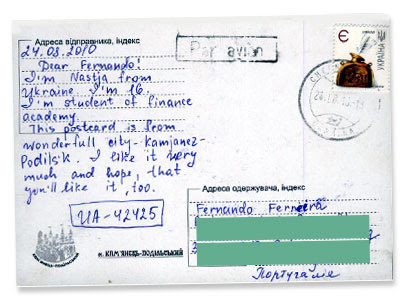 Адреса відправника, індекс
24.08.2010
Dear Fernando!
I'm Nastja from
Ukraine. I'm 16.
I'm student of finance
academy.
This postcard is from
wonderfull city - Kamjanez-
Podilsk. I like it very
much and hope, that
you'll like it, too.
UA-42425
Par avion
є
УКРАЇНА
Адреса одержувача, індекс
Fernando Ferreira
Португалія
м. КАМ'ЯНЕЦЬ-ПОДІЛЬСЬКИЙ